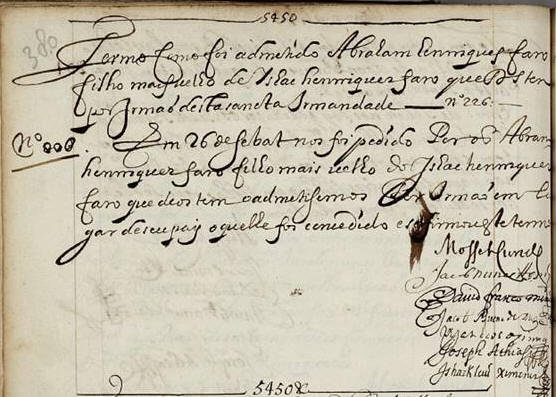 5450
380
Termo Como foi admetido Abraham henriques faro
filho mais uelho de Ishac henriques faro que Ds tem
por Irmaõ desta sancta Irmandade — nº 226 —
Nº
Em 26 de sebat nos foi pedido Por os Abram
henriques faro filho mais uelho de Ishac henriques
faro que deos tem o admetisemos Por Irmaõ em lu
gar de seu pay o quelhe foi concedido e firmou este termo
Mosseh
Jacob nunes
David franco
Jacob
Joseph Athias
Ishack ximenes
5450